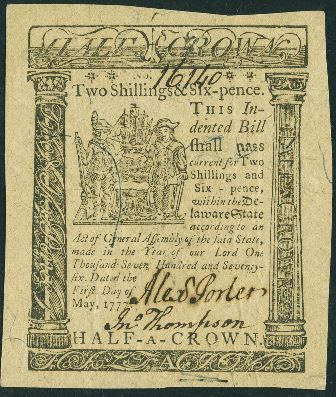 HALF CROWN
No. 16140
Two Shillings & Six-pence.
THIS In-
dented Bill
shall pass
current for Two
Shillings and
Six - pence,
within the De-
laware State
according to an
Act of General Assembly of the said State,
made in the Year of our Lord One
Thousand Seven Hundred and Seventy-
six. Dated the
First Day of
May, 1777.
Alexd Porter
Jno Thompson
HALF-A-CROWN.
A